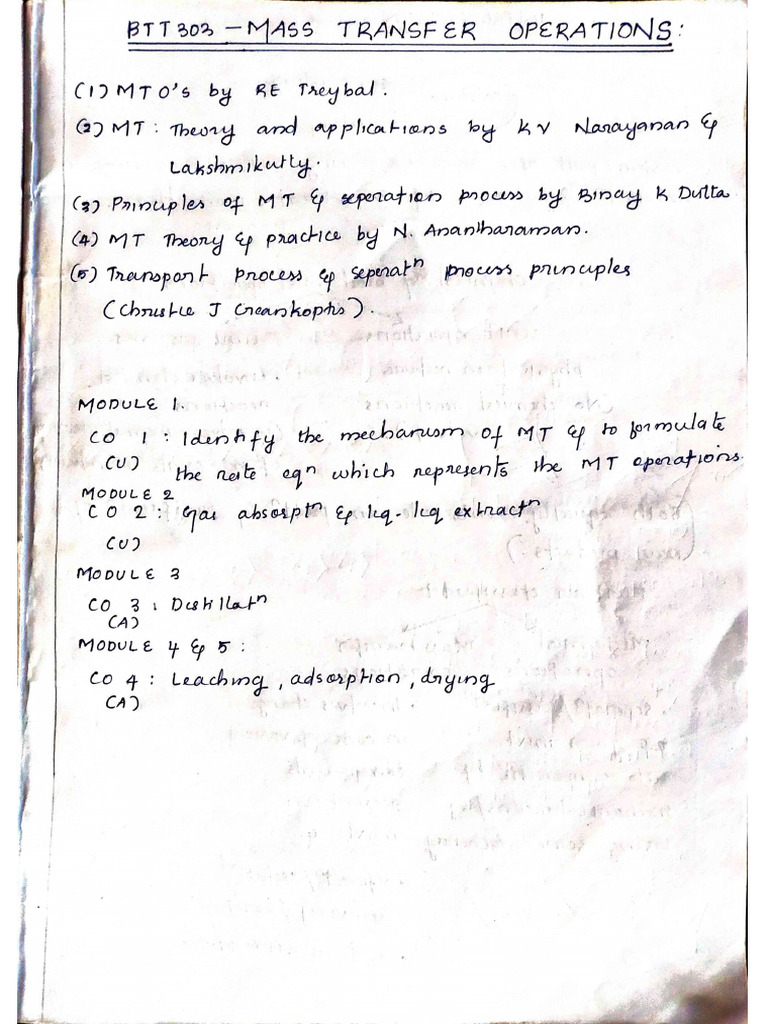 BTT303 - MASS TRANSFER OPERATIONS:
(1) MTO's by RE Treybal.
(2) MT: Theory and applications by KV Narayanan &
Lakshmikutty.
(3) Principles of MT & seperation process by Binay K Dutta
(4) MT Theory & practice by N. Anantharaman.
(5) Transport process & seperatⁿ process principles
(Christie J Geankoplis).
MODULE 1.
CO 1: Identify the mechanism of MT & to formulate
(U) the rate eqⁿ which represents the MT operations.
MODULE 2
CO 2: Gas absorptⁿ & liq-liq extractⁿ
(U)
MODULE 3
CO 3: Distillatⁿ
(A)
MODULE 4 & 5:
CO 4: Leaching, adsorption, drying
(A)